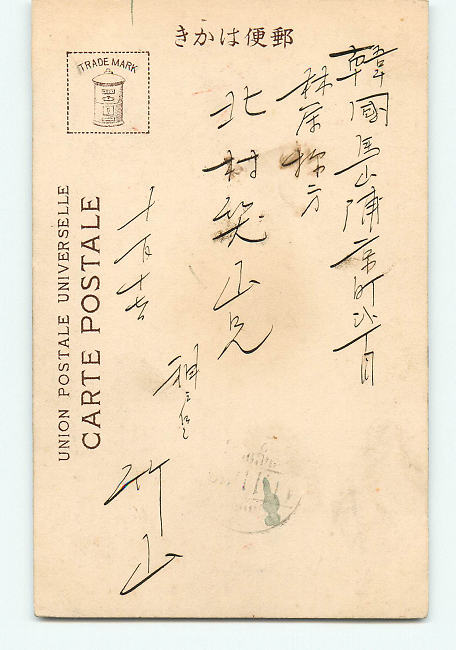 きかは便郵
TRADE MARK
UNION POSTALE UNIVERSELLE
CARTE POSTALE
韓國馬山浦京町弐丁目
北村笑山兄
十月十七
竹山